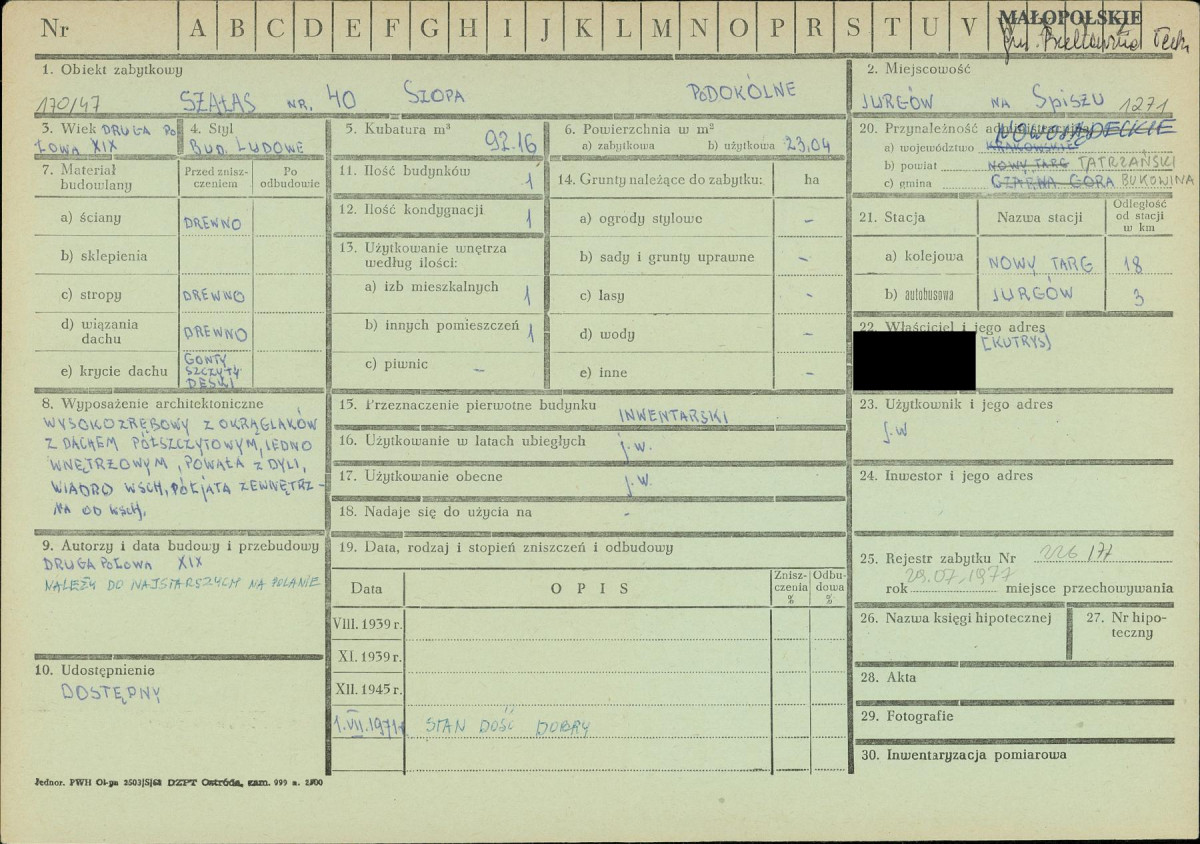 Nr A B C D E F G H I J K L M N O P R S T U V W
MAŁOPOLSKIE
1. Obiekt zabytkowy
170/47 SZAŁAS NR. 40 SZOPA PODOKÓLNE
2. Miejscowość
JURGÓW NA SPISZU 1271
3. Wiek DRUGA PO
ŁOWA XIX
4. Styl
BUD. LUDOWE
5. Kubatura m³
92.16
6. Powierzchnia w m²
a) zabytkowa b) użytkowa 23,04
20. Przynależność administracyjna
NOWOSĄDECKIE
a) województwo KRAKOWSKIE
b) powiat NOWY TARG TATRZAŃSKI
c) gmina CZARNA GÓRA BUKOWINA
7. Materiał
budowlany
Przed znisz-
czeniem
Po
odbudowie
a) ściany DREWNO
b) sklepienia
c) stropy DREWNO
d) wiązania
dachu DREWNO
e) krycie dachu GONTY
SZCZYTY
DESKI
11. Ilość budynków 1
12. Ilość kondygnacji 1
13. Użytkowanie wnętrza
według ilości:
a) izb mieszkalnych 1
b) innych pomieszczeń 1
c) piwnic –
14. Grunty należące do zabytku: ha
a) ogrody stylowe –
b) sady i grunty uprawne –
c) lasy -
d) wody –
e) inne –
21. Stacja Nazwa stacji Odległość
od stacji
w km
a) kolejowa NOWY TARG 18
b) autobusowa JURGÓW 3
22. Właściciel i jego adres
(KUTRYS)
8. Wyposażenie architektoniczne
WYSOKOZRĘBOWY Z OKRĄGLAKÓW
Z DACHEM PÓŁSZCZYTOWYM, JEDNO
WNĘTRZOWYM, POWAŁA Z DYLI,
WIADRO WSCH, POŁJATA ZEWNĘTRZ-
NA OD WSCH.
15. Przeznaczenie pierwotne budynku INWENTARSKI
16. Użytkowanie w latach ubiegłych j.w.
17. Użytkowanie obecne j.w.
18. Nadaje się do użycia na -
23. Użytkownik i jego adres
j.w
24. Inwestor i jego adres
9. Autorzy i data budowy i przebudowy
DRUGA POŁOWA XIX
NALEŻY DO NAJSTARSZYCH NA POLANIE
10. Udostępnienie
DOSTĘPNY
19. Data, rodzaj i stopień zniszczeń i odbudowy
Data OPIS Znisz-
czenia
% Odbu-
dowa
%
VIII. 1939 r.
XI. 1939 r.
XII. 1945 r.
1.VII.1971r STAN DOŚĆ DOBRY
25. Rejestr zabytku Nr 226/77
29.07.1977
rok miejsce przechowywania
26. Nazwa księgi hipotecznej
27. Nr hipo-
teczny
28. Akta
29. Fotografie
30. Inwentaryzacja pomiarowa
Jednor. PWH Ol-pn 2503/S/68 DZPT Ostróda, zam. 999 n. 2500